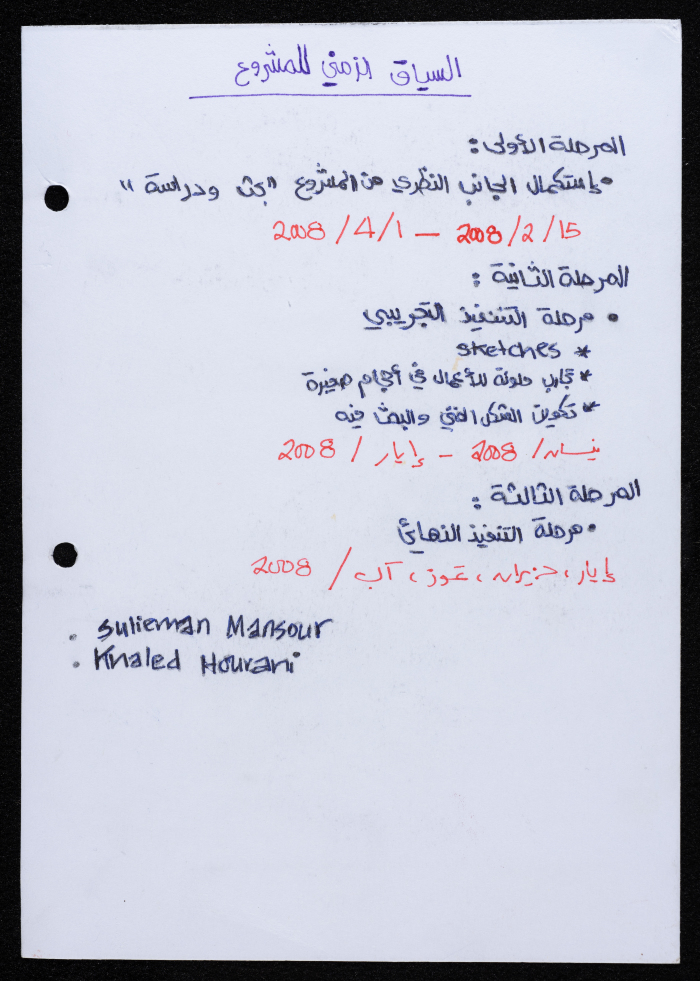 السياق الزمني للمشروع
المرحلة الأولى :
• إستكمال الجانب النظري من المشروع "بحث ودراسة"
2008/2/15 — 2008/4/1
المرحلة الثانية :
• مرحلة التنفيذ التجريبي
* sketches
* تجارب ملونة للأعمال في أحجام صغيرة
* تكوين الشكل الفني والبحث فيه
نيسان/ 2008 - إيار / 2008
المرحلة الثالثة :
• مرحلة التنفيذ النهائي
إيار، حزيران، تموز، آب / 2008
. Sulieman Mansour
. Khaled Hourani